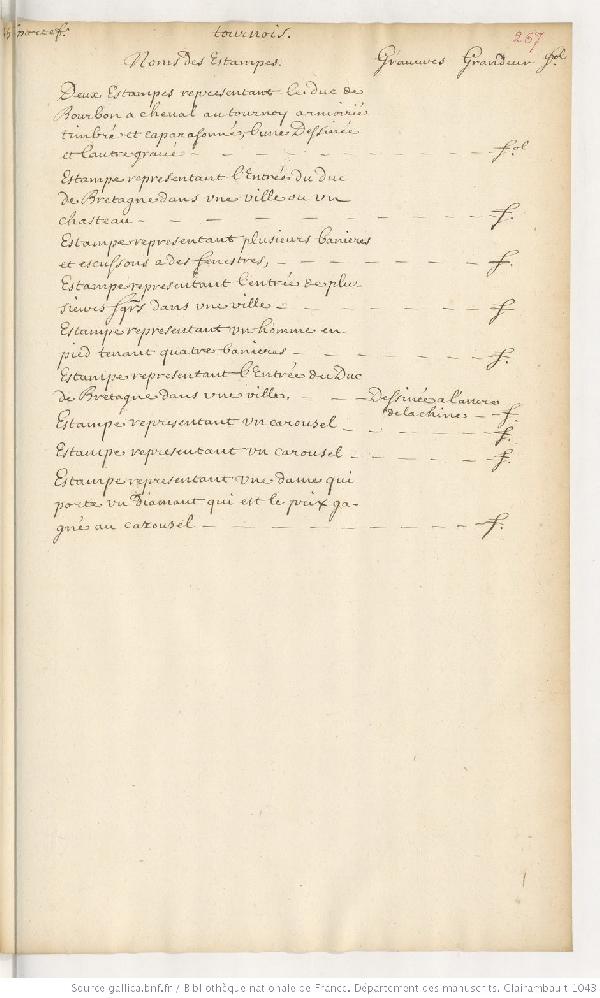 portef. tournois. 267
Noms des Estampes. Graveurs Grandeur fol
Deux Estampes representant le duc de
Bourbon a cheval au tournoy armoirié
timbré et caparasonné, l'une Dessinée
et l'autre gravé - - - - - - - fol
Estampe representant l'Entrée du duc
de Bretagne dans vne ville ou vn
chasteau - - - - - - - - f.
Estampe representant plusieurs banieres
et escussons a des fenestres, - - - - - f.
Estampe representant l'entrée de plu-
sieurs sgrs dans vne ville - - - - - f
Estampe representant vn homme en
pied tenant quatre banieres - - - - - f.
Estampe representant l'Entrée du Duc
de Bretagne dans vne ville, - - - Dessinée a l'ancre
de la chine - f.
Estampe representant vn carousel - - - - f.
Estampe representant vn carousel - - - - f.
Estampe representant vne dame qui
porte vn Diamant qui est le prix ga-
gné au carousel - - - - - - - f.
Source gallica.bnf.fr / Bibliothèque nationale de France. Département des manuscrits. Clairambault 1043